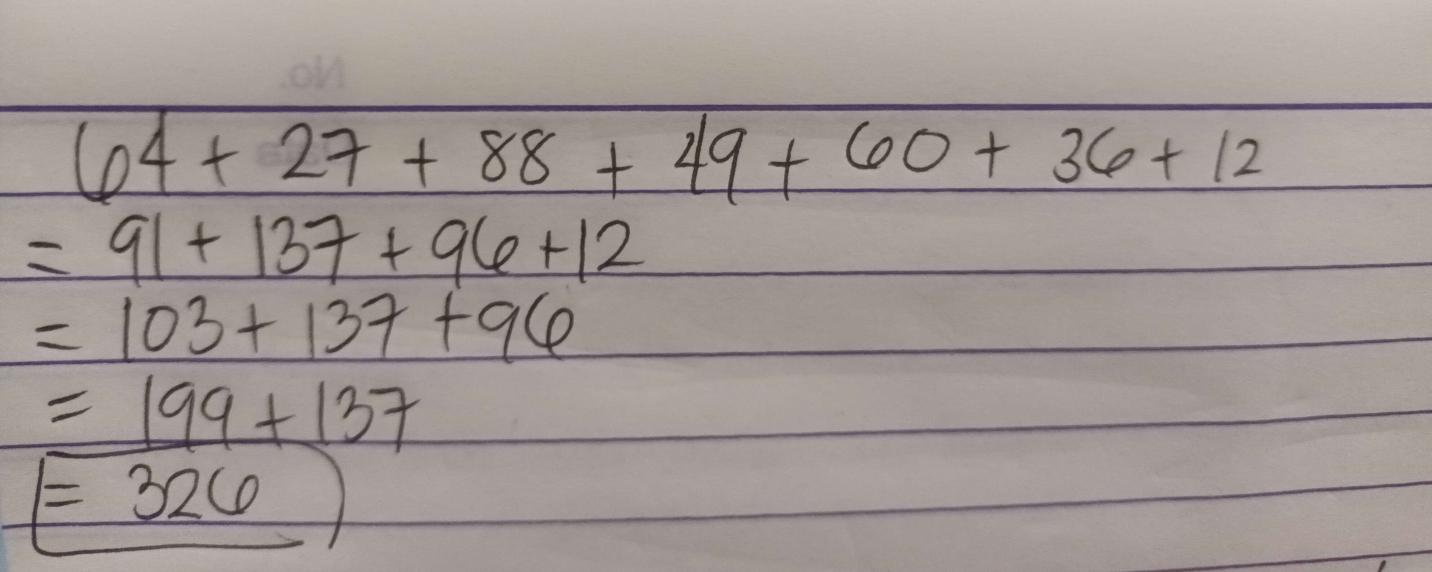 64 + 27 + 88 + 49 + 60 + 36 + 12
= 91 + 137 + 96 + 12
= 103 + 137 + 96
= 199 + 137
= 326